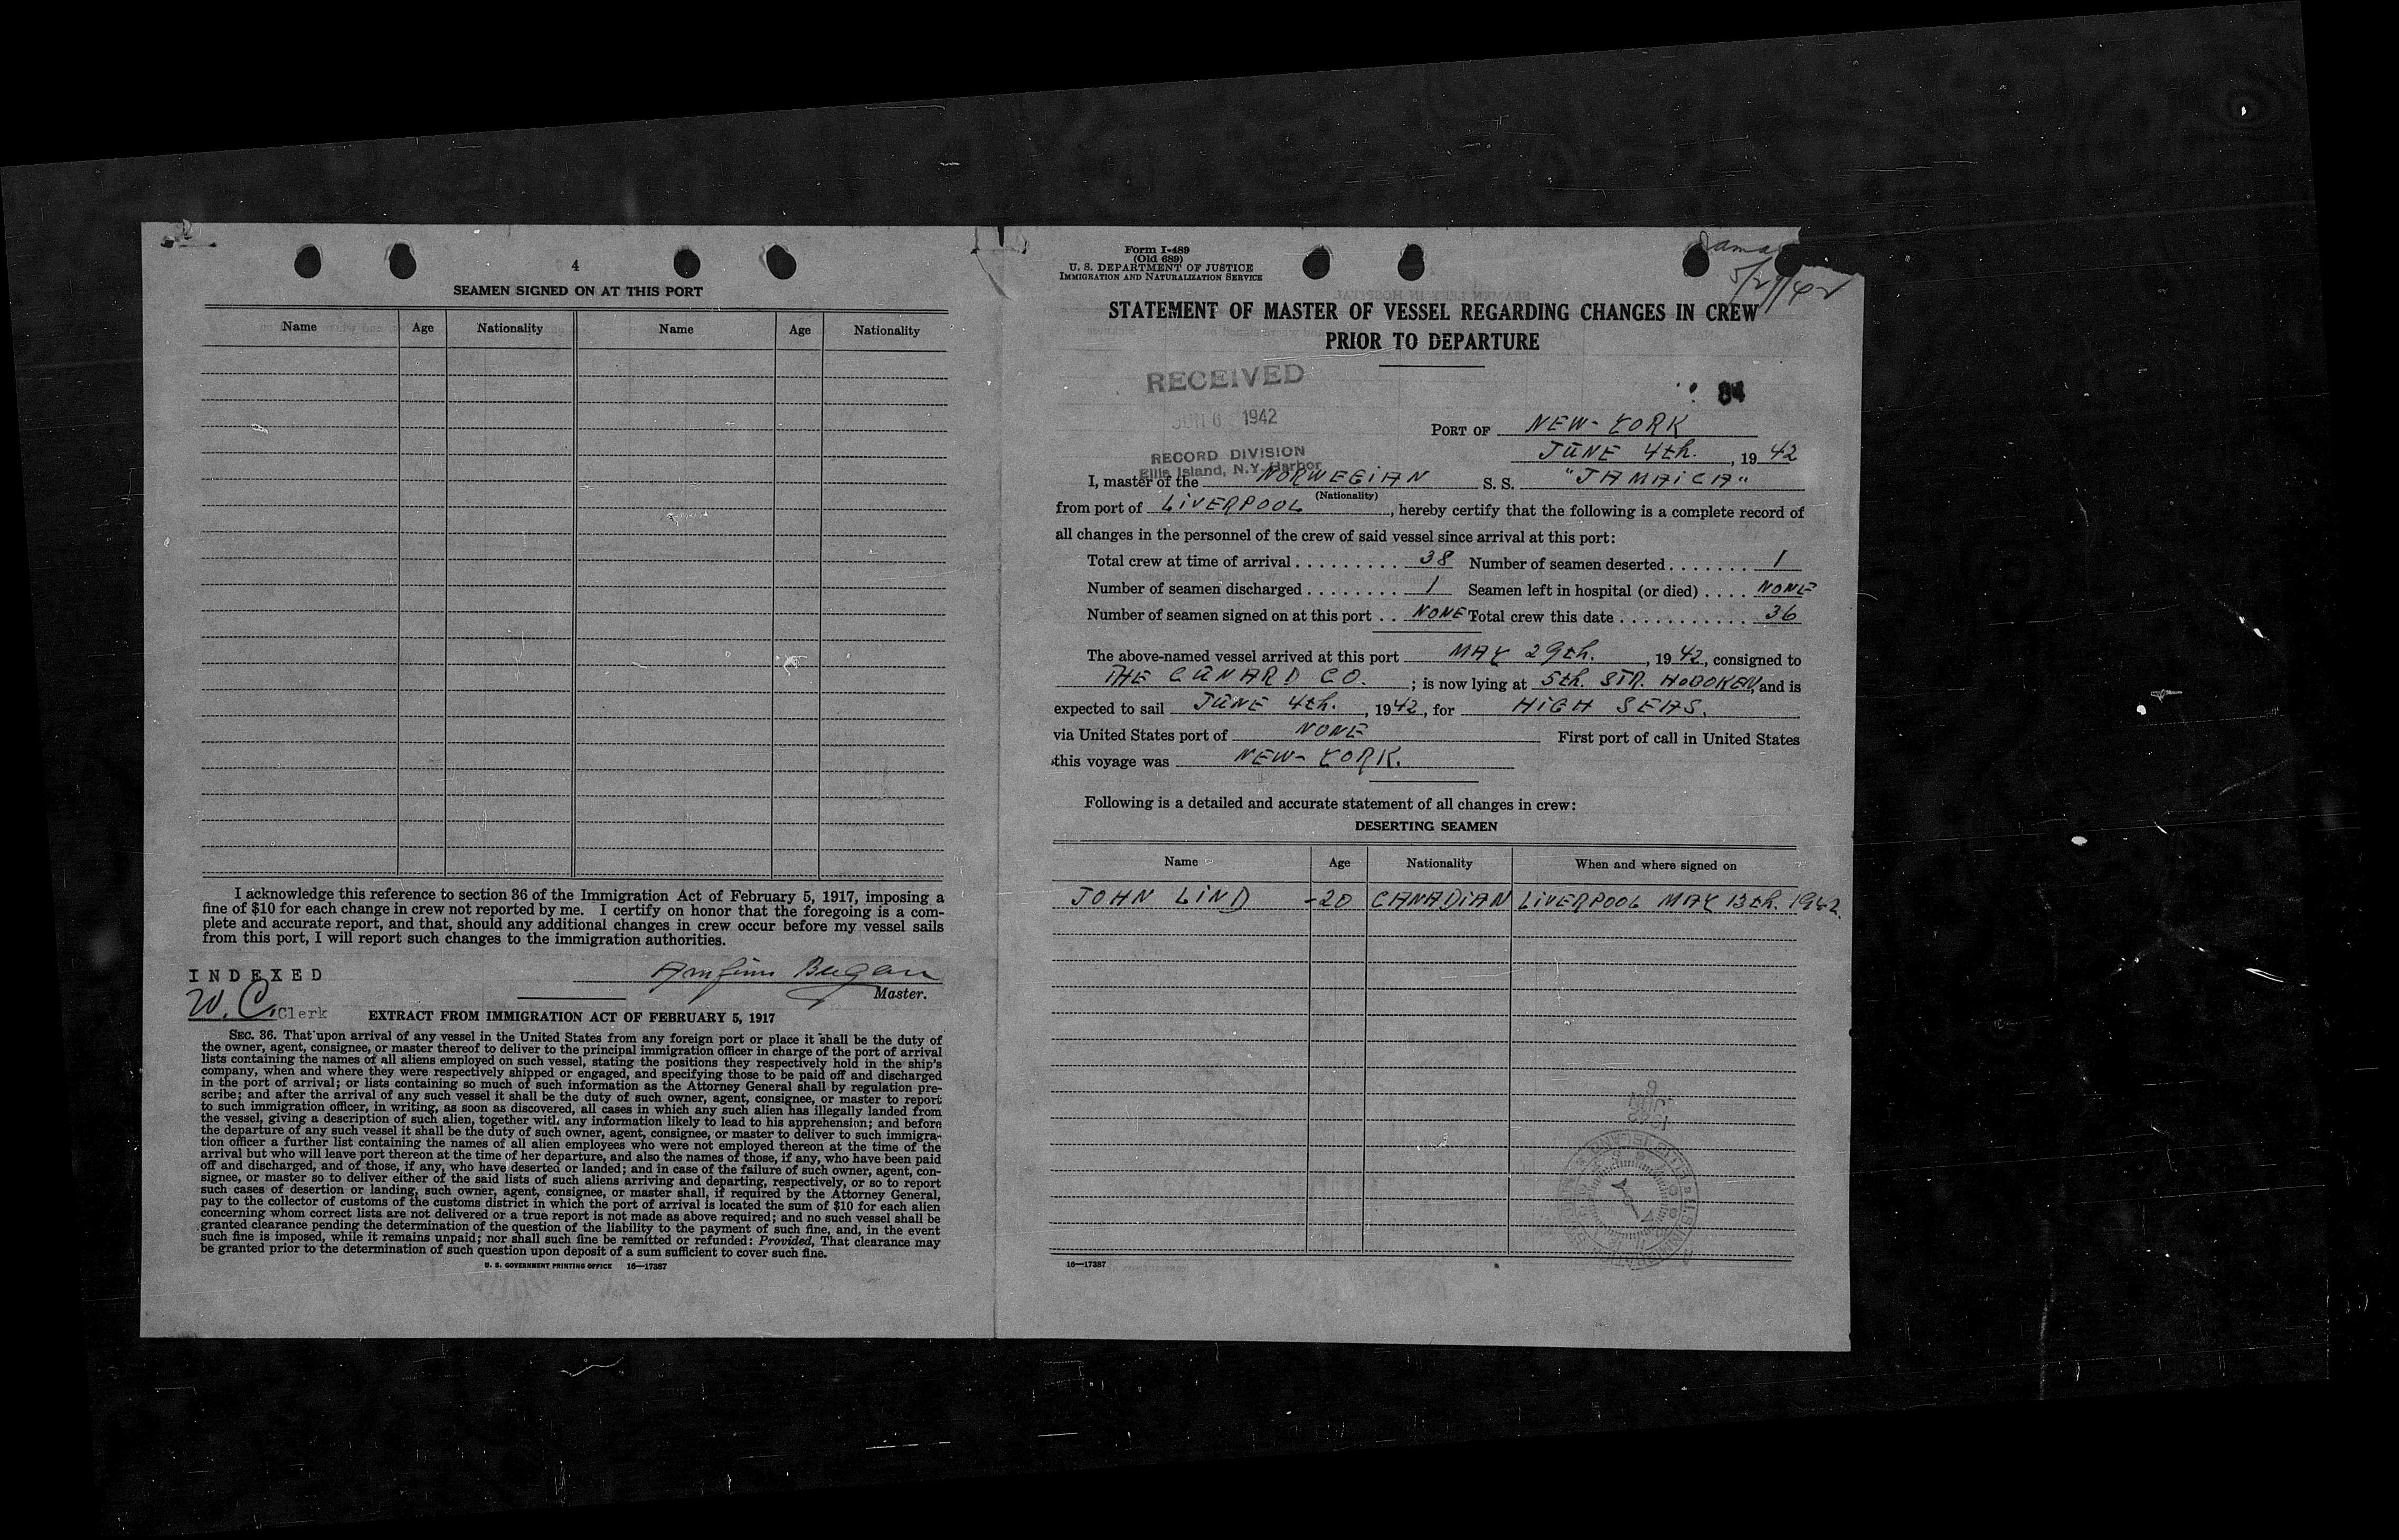 4
SEAMEN SIGNED ON AT THIS PORT
Name Age Nationality Name Age Nationality
I acknowledge this reference to section 36 of the Immigration Act of February 5, 1917, imposing a
fine of $10 for each change in crew not reported by me. I certify on honor that the foregoing is a com-
plete and accurate report, and that, should any additional changes in crew occur before my vessel sails
from this port, I will report such changes to the immigration authorities.
INDEXED
Master.
W. C. Clerk
EXTRACT FROM IMMIGRATION ACT OF FEBRUARY 5, 1917
SEC. 36. That upon arrival of any vessel in the United States from any foreign port or place it shall be the duty of
the owner, agent, consignee, or master thereof to deliver to the principal immigration officer in charge of the port of arrival
lists containing the names of all aliens employed on such vessel, stating the positions they respectively hold in the ship's
company, when and where they were respectively shipped or engaged, and specifying those to be paid off and discharged
in the port of arrival; or lists containing so much of such information as the Attorney General shall by regulation pre-
scribe; and after the arrival of any such vessel it shall be the duty of such owner, agent, consignee, or master to report
to such immigration officer, in writing, as soon as discovered, all cases in which any such alien has illegally landed from
the vessel, giving a description of such alien, together with any information likely to lead to his apprehension; and before
the departure of any such vessel it shall be the duty of such owner, agent, consignee, or master to deliver to such immigra-
tion officer a further list containing the names of all alien employees who were not employed thereon at the time of the
arrival but who will leave port thereon at the time of her departure, and also the names of those, if any, who have been paid
off and discharged, and of those, if any, who have deserted or landed; and in case of the failure of such owner, agent, con-
signee, or master so to deliver either of the said lists of such aliens arriving and departing, respectively, or so to report
such cases of desertion or landing, such owner, agent, consignee, or master shall, if required by the Attorney General,
pay to the collector of customs of the customs district in which the port of arrival is located the sum of $10 for each alien
concerning whom correct lists are not delivered or a true report is not made as above required; and no such vessel shall be
granted clearance pending the determination of the question of the liability to the payment of such fine, and, in the event
such fine is imposed, while it remains unpaid; nor shall such fine be remitted or refunded: Provided, That clearance may
be granted prior to the determination of such question upon deposit of a sum sufficient to cover such fine.
U. S. GOVERNMENT PRINTING OFFICE 16—17387
Form I-489
(Old 689)
U. S. DEPARTMENT OF JUSTICE
IMMIGRATION AND NATURALIZATION SERVICE
5/29/42
STATEMENT OF MASTER OF VESSEL REGARDING CHANGES IN CREW
PRIOR TO DEPARTURE
RECEIVED
84
JUN 6 1942
PORT OF NEW-YORK
RECORD DIVISION
Ellis Island, N.Y. Harbor
JUNE 4th., 1942
I, master of the NORWEGIAN S. S. "JAMAICA"
(Nationality)
from port of LIVERPOOL, hereby certify that the following is a complete record of
all changes in the personnel of the crew of said vessel since arrival at this port:
Total crew at time of arrival ......... 38 Number of seamen deserted ....... 1
Number of seamen discharged ........ 1 Seamen left in hospital (or died) .... NONE
Number of seamen signed on at this port .. NONE Total crew this date ........... 36
The above-named vessel arrived at this port MAY 29th., 1942, consigned to
THE CUNARD CO.; is now lying at 5th. STR. HOBOKEN, and is
expected to sail JUNE 4th., 1942, for HIGH SEAS.
via United States port of NONE First port of call in United States
this voyage was NEW-YORK.
Following is a detailed and accurate statement of all changes in crew:
DESERTING SEAMEN
Name Age Nationality When and where signed on
JOHN LIND -20 CANADIAN LIVERPOOL MAY 13th. 1942.
16—17387